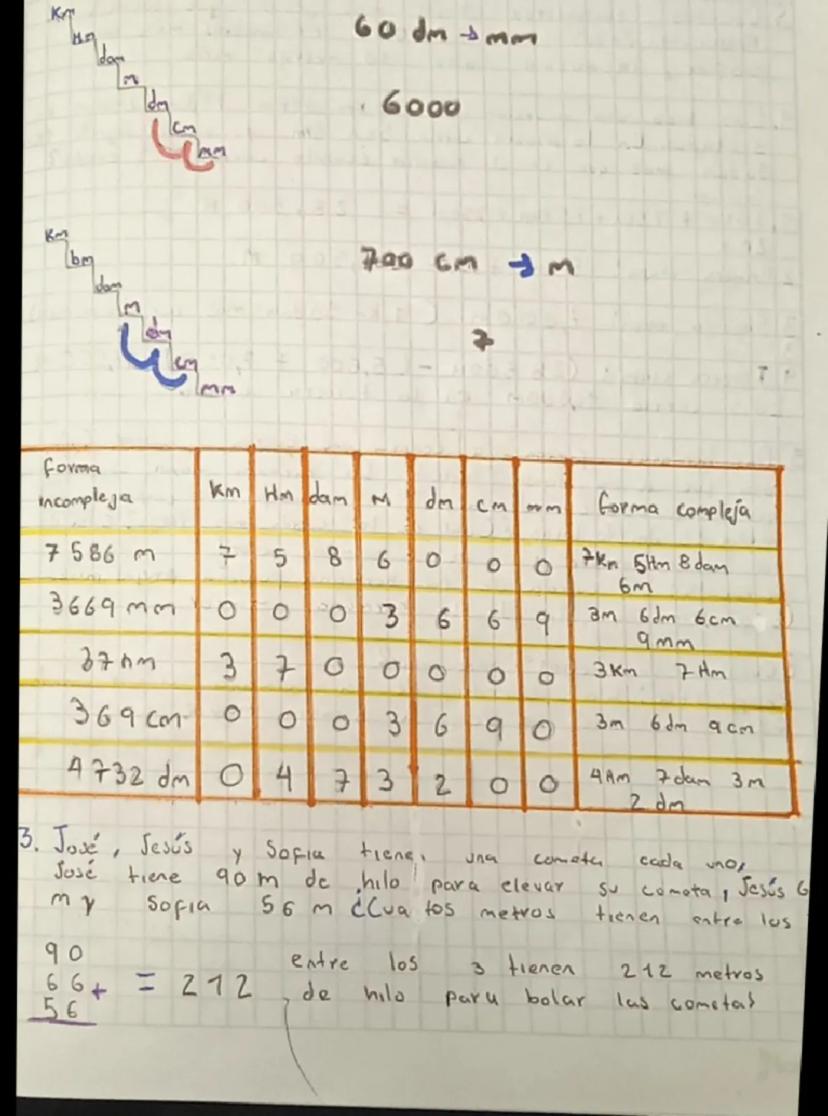 Km
Hm
dam
m
dm
cm
mm
60 dm → mm
6000
Km
bm
dam
m
dm
cm
mm
700 cm → m
7
forma incompleja Km Hm dam M dm cm mm forma compleja
7 586 m 7 5 8 6 0 0 0 7Km 5Hm 8dam
6m
3669 mm 0 0 0 3 6 6 9 3m 6dm 6cm
9mm
37hm 3 7 0 0 0 0 0 3Km 7Hm
369 cm 0 0 0 3 6 9 0 3m 6dm 9cm
4732 dm 0 4 7 3 2 0 0 4Hm 7dam 3m
2 dm
3. José, Jesús y Sofia tiene, una cometa cada uno,
José tiene 90 m de hilo para elevar su cometa, Jesús 6
m y Sofia 56 m ¿Cua tos metros tienen entre los
90
66 + = 212
56
entre los 3 tienen 212 metros
de hilo para bolar las cometas